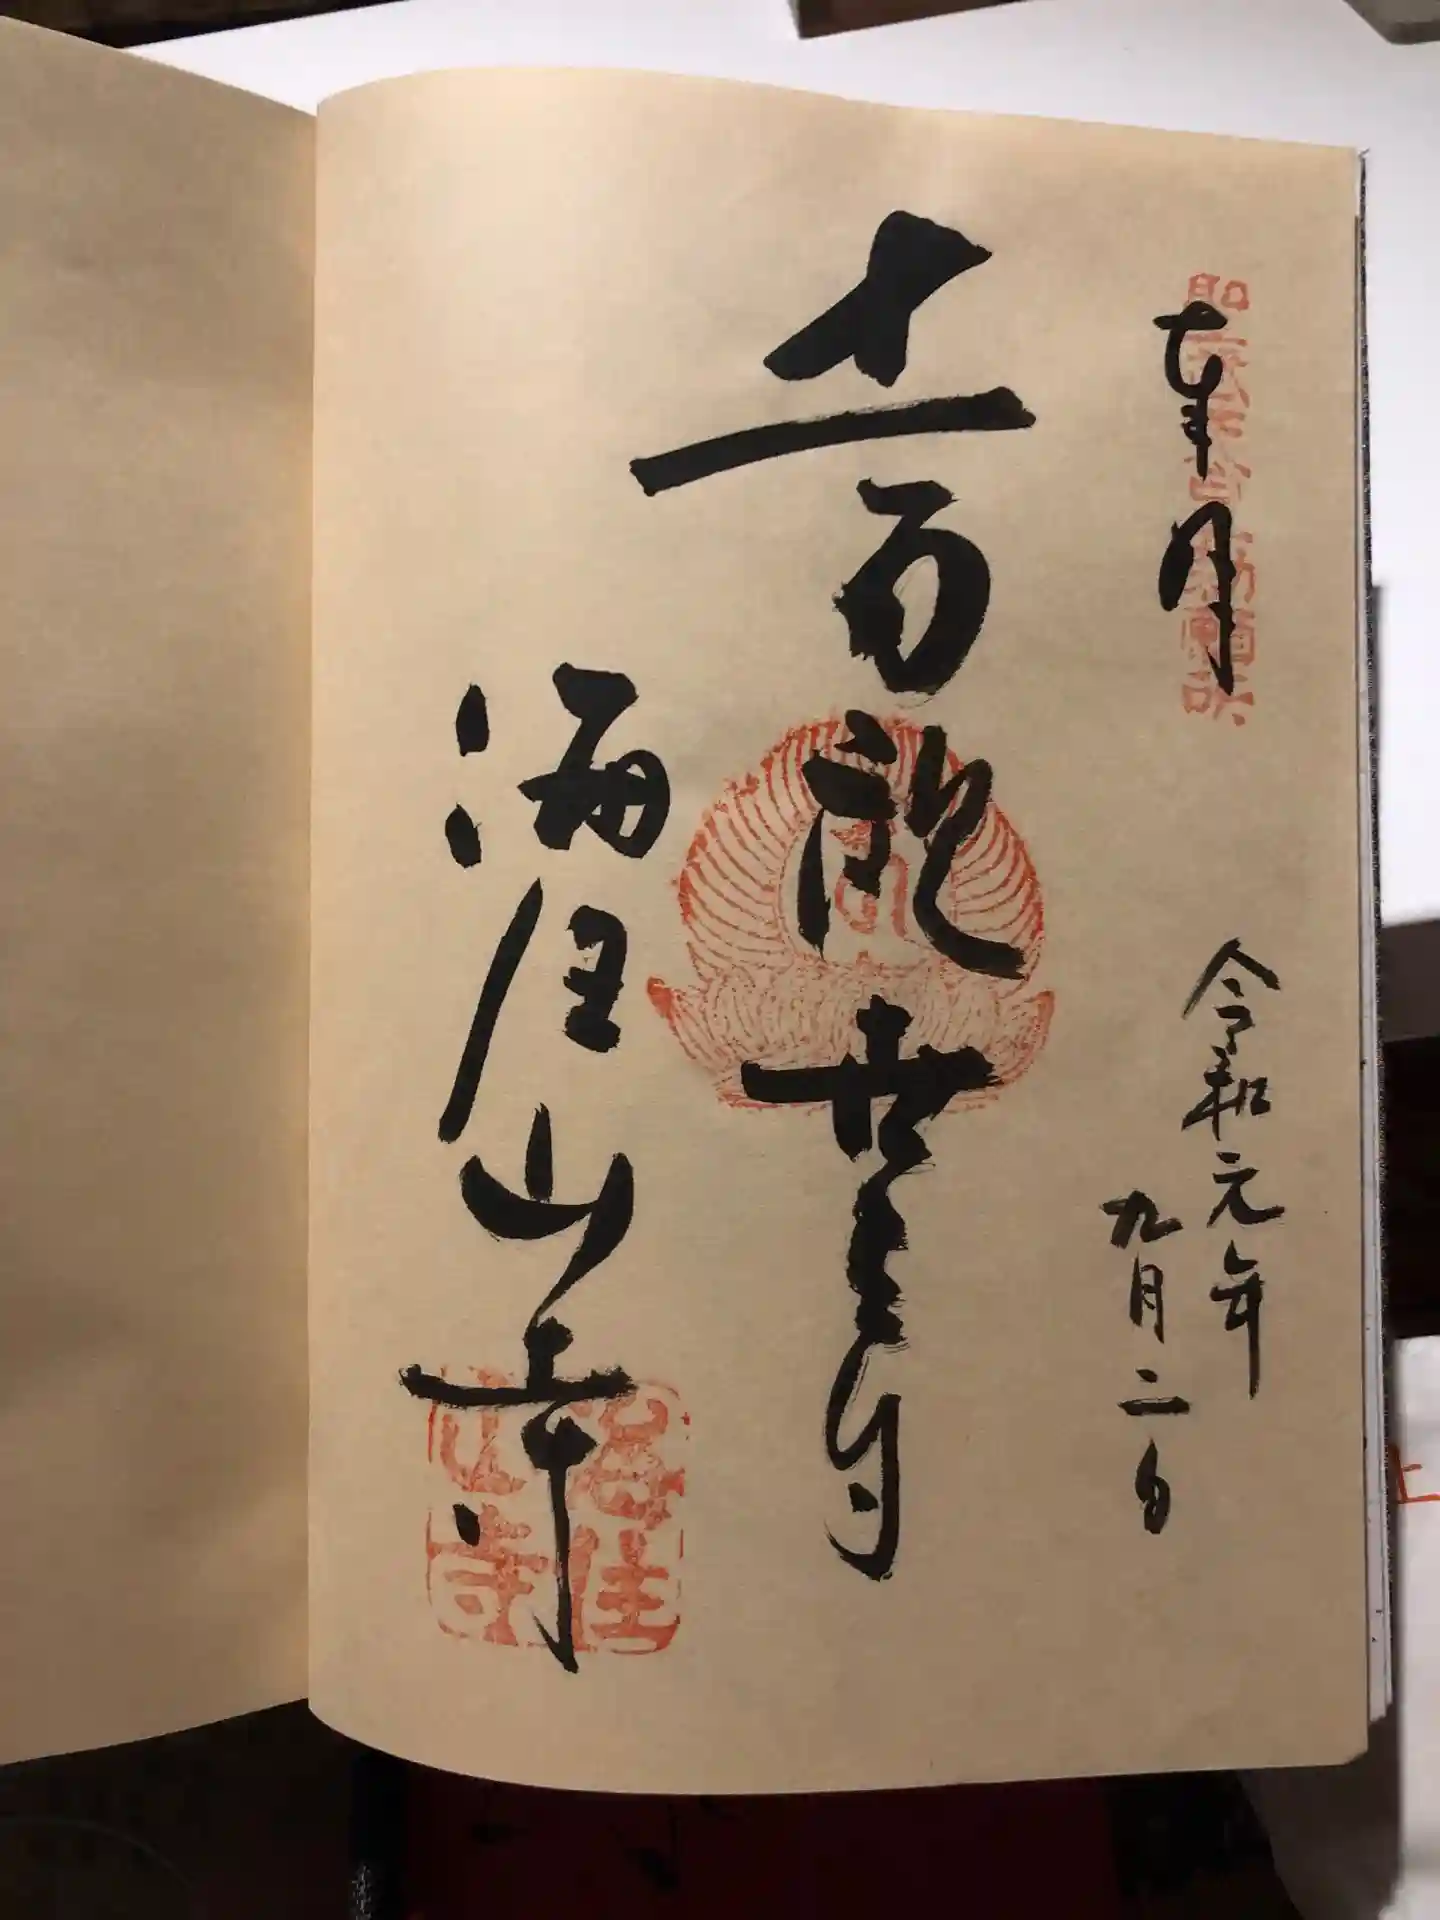 聖武天皇勅願所
奉拝
令和元年
九月二日
十一面観世音
海住山寺
海住山寺